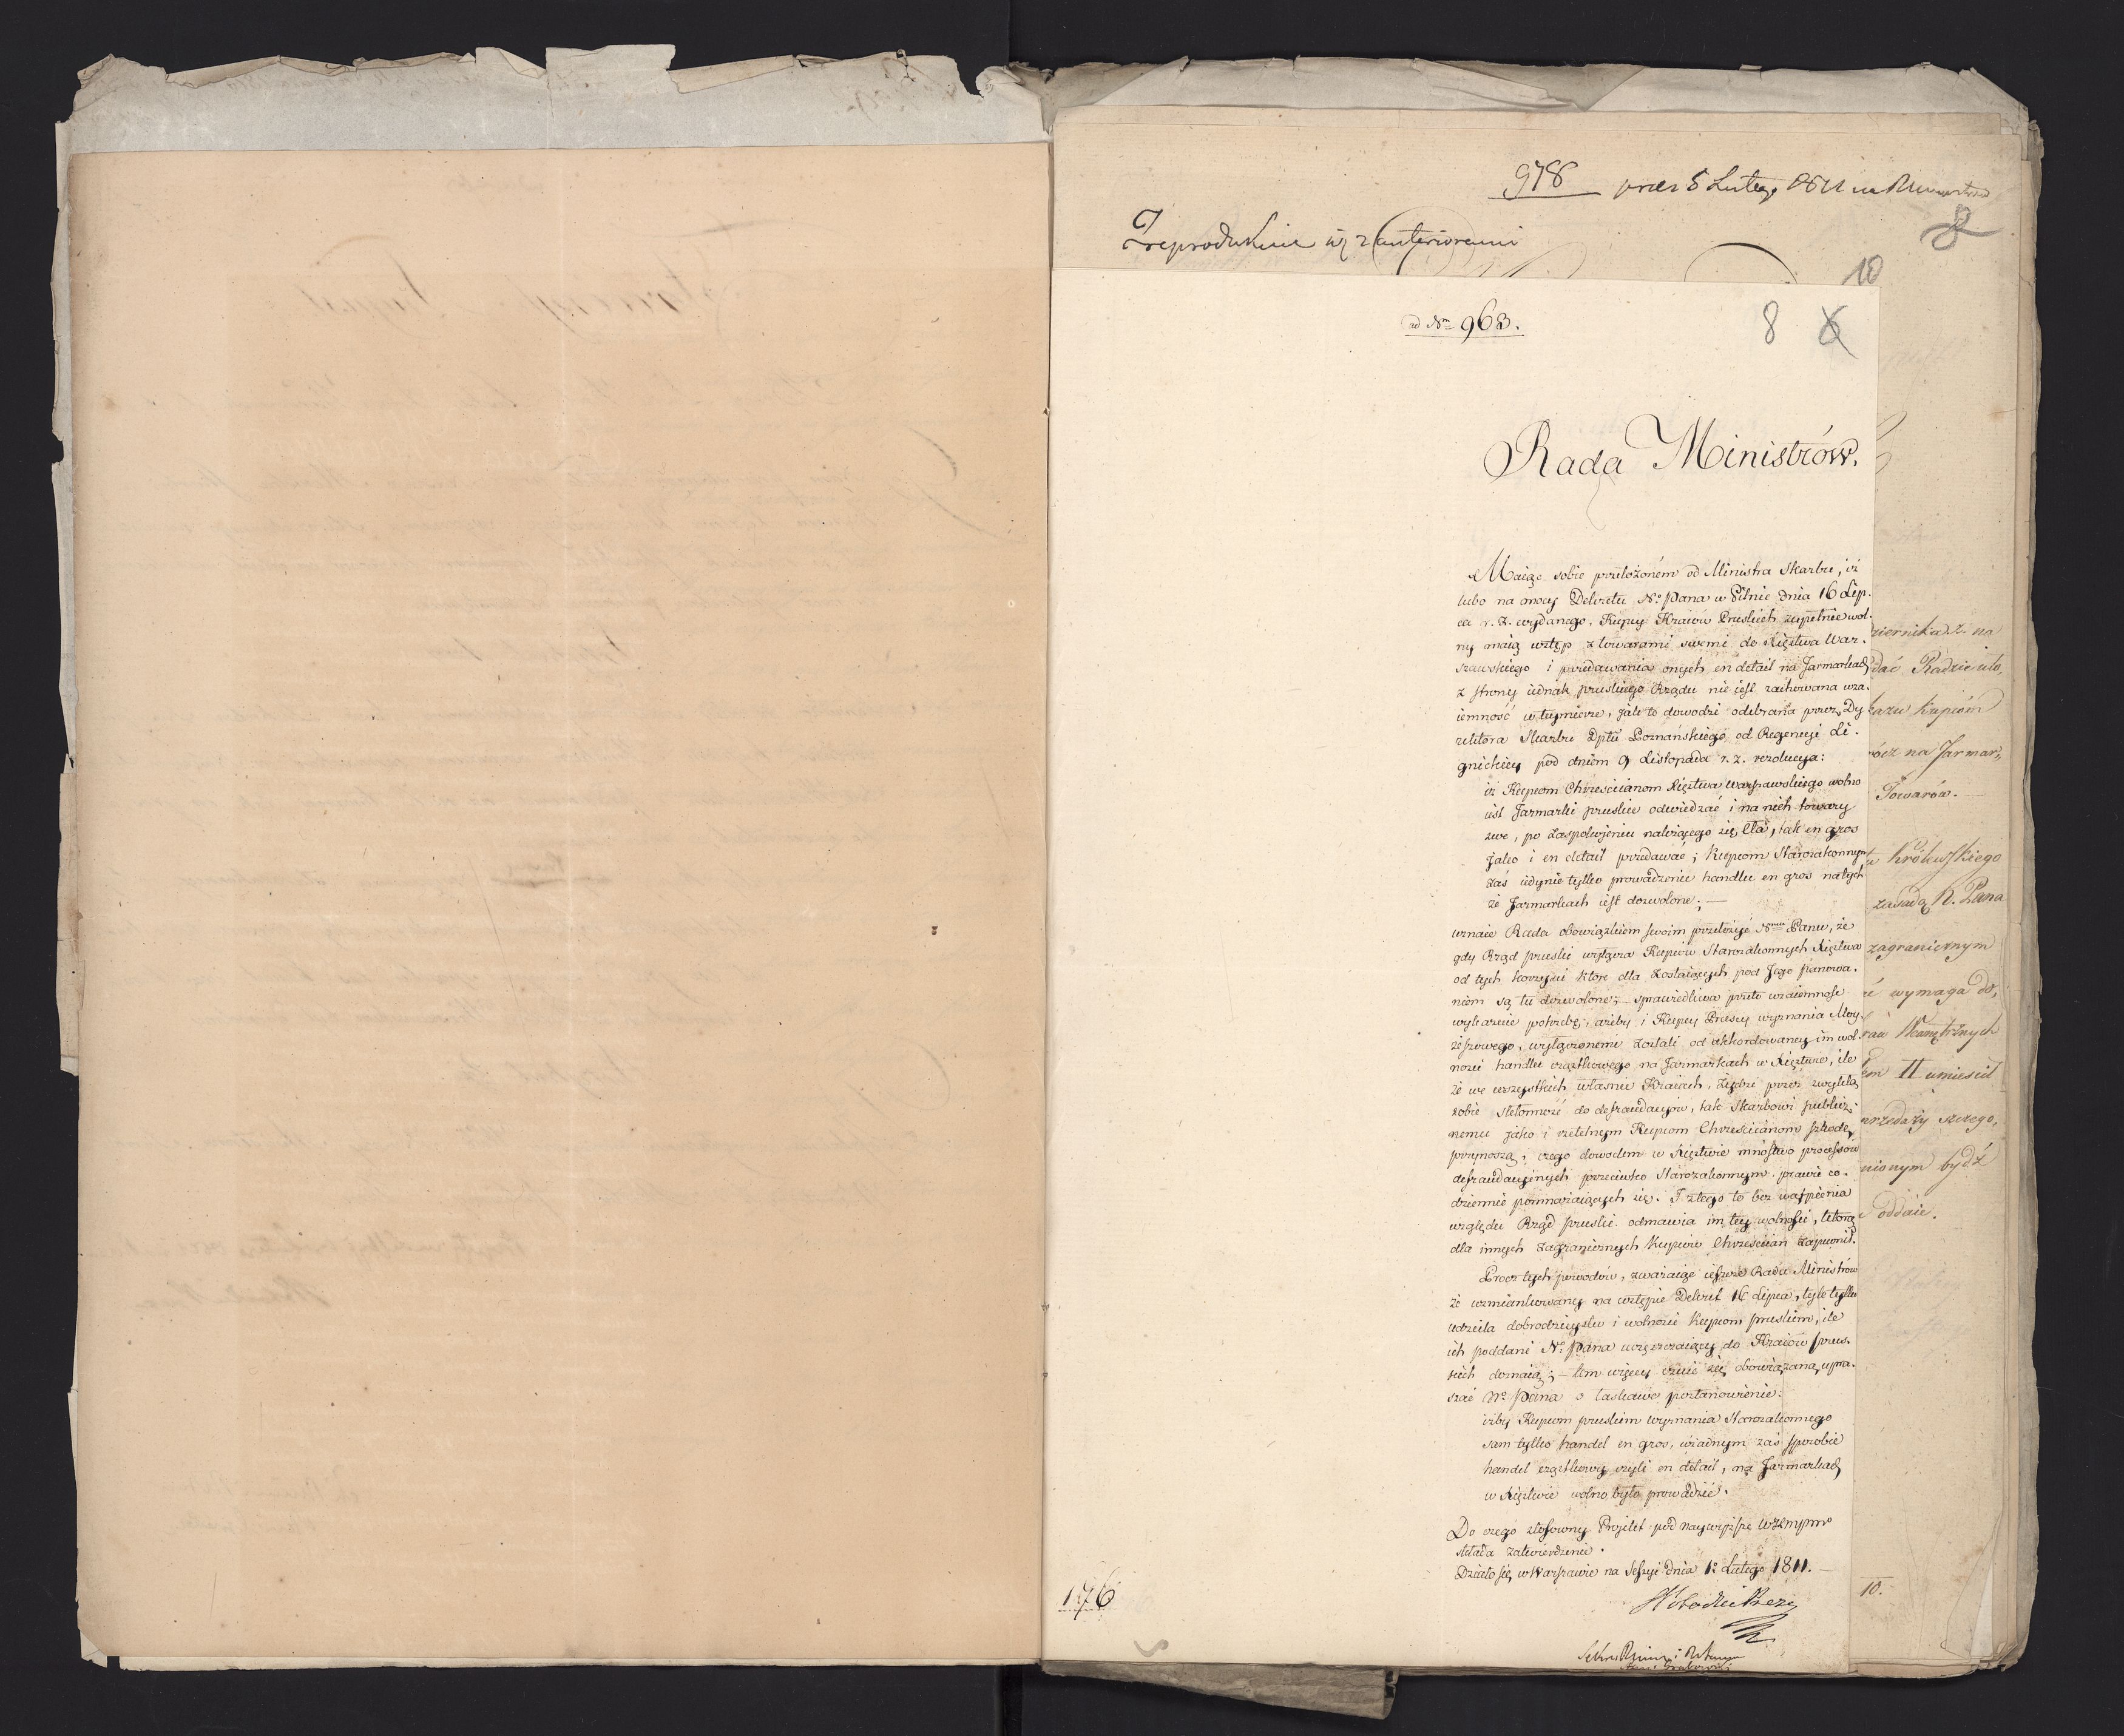 978 prez 5 Lutego 1811
Zreprodukuie się z anterioremi
10
ad Nrm 963.
8 6
Rada Ministrów.
Maiąc sobie przełożoném od Ministra Skarbu, iż
lubo na mocy Dekretu No Pana w Pilnic dnia 16 Lip.
ca r. z. wydanego, Kupcy Kraiów Pruskich zupełnie wol.
ny maią wstęp z towarami swemi do Księstwa War.
szawskiego i przedawania onych en detail na Jarmarkach
z strony iednak pruskiego Rządu nie iest zachowana wza.
iemność w tey mierze, jak to dowodzi odebrana przez Dy
rektora Skarbu Dptu Poznańskiego od Regencyi Li.
gnickiey pod dniem 9 Listopada r. z. rezolucya:
iż Kupcom Chrześcianom Księstwa Warszawskiego wolno
iest Jarmarki pruskie odwiedzać i na nich towary
swe, po zaspokoieniu należącego się Cła, tak en gros
jako i en detail przedawać; Kupcom Starozakonnym
zaś iedynie tylko prowadzenie handlu en gros na tych
że Jarmarkach iest dozwolone; —
uznaie Rada obowiązkiem swoim przełożyć Nmu Panu, że
gdy Rząd pruski wyłącza Kupców Starozakonnych Księstwa
od tych korzyści które dla zostaiących pod Jego panowa.
niem są tu dozwolone; — sprawiedliwa przeto wzaiemność
wykazuie potrzebę, ażeby i Kupcy Pruscy wyznania Moy.
żeszowego, wyłączonemi zostali od akkordowaney im wol.
ności handlu cząstkowego na Jarmarkach w Księstwie, ile
że we wszystkich własnie Kraiach, Żydzi przez zwykłą
sobie skłonność do defraudacyów, tak Skarbowi publicz.
nemu jako i rzetelnym Kupcom Chrześcianom szkodę
przynoszą, czego dowodem w Księstwie mnóstwo processów
defraudacyinych przeciwko Starozakonnym prawie co.
dziennie pomnażaiących się. I z tego to bez wątpienia
względu Rząd pruski odmawia im tey wolności, którą
dla innych zagranicznych Kupców Chrześcian zapewnił.
Procz tych powodów, zważaiąc ieszcze Rada Ministrów
że wzmiankowany na wstępie Dekret 16 Lipca, tyle tylko
udziela dobrodzieystw i wolności Kupcom pruskim, ile
ich poddani No Pana uczęszczaiący do Kraiów prus.
kich doznaią; — tem więcey czuie się obowiązaną upra.
szać No Pana o łaskawe postanowienie:
iżby Kupcom pruskim wyznania Starozakonnego
sam tylko handel en gros, w żadnym zaś sposobie
handel cząstkowy czyli en detail, na Jarmarkach
w Księstwie wolno było prowadzić.
Do czego stosowny Projekt pod naywyższe
składa zatwierdzenie.
Działo się w Warszawie na Sessyi dnia 1o Lutego 1811. —
176
Grabowski
ziernika r. z. na
dać Radzie
kazu kupcóm
rócz na Jarmar,
Towarów. —
Królewskiego
zasadą N. Pana
zagranicznym
wymaga do,
raw Wewnętrznych
em II umieścił
przedaży szczegó,
nionym bydź
oddaie.
10.